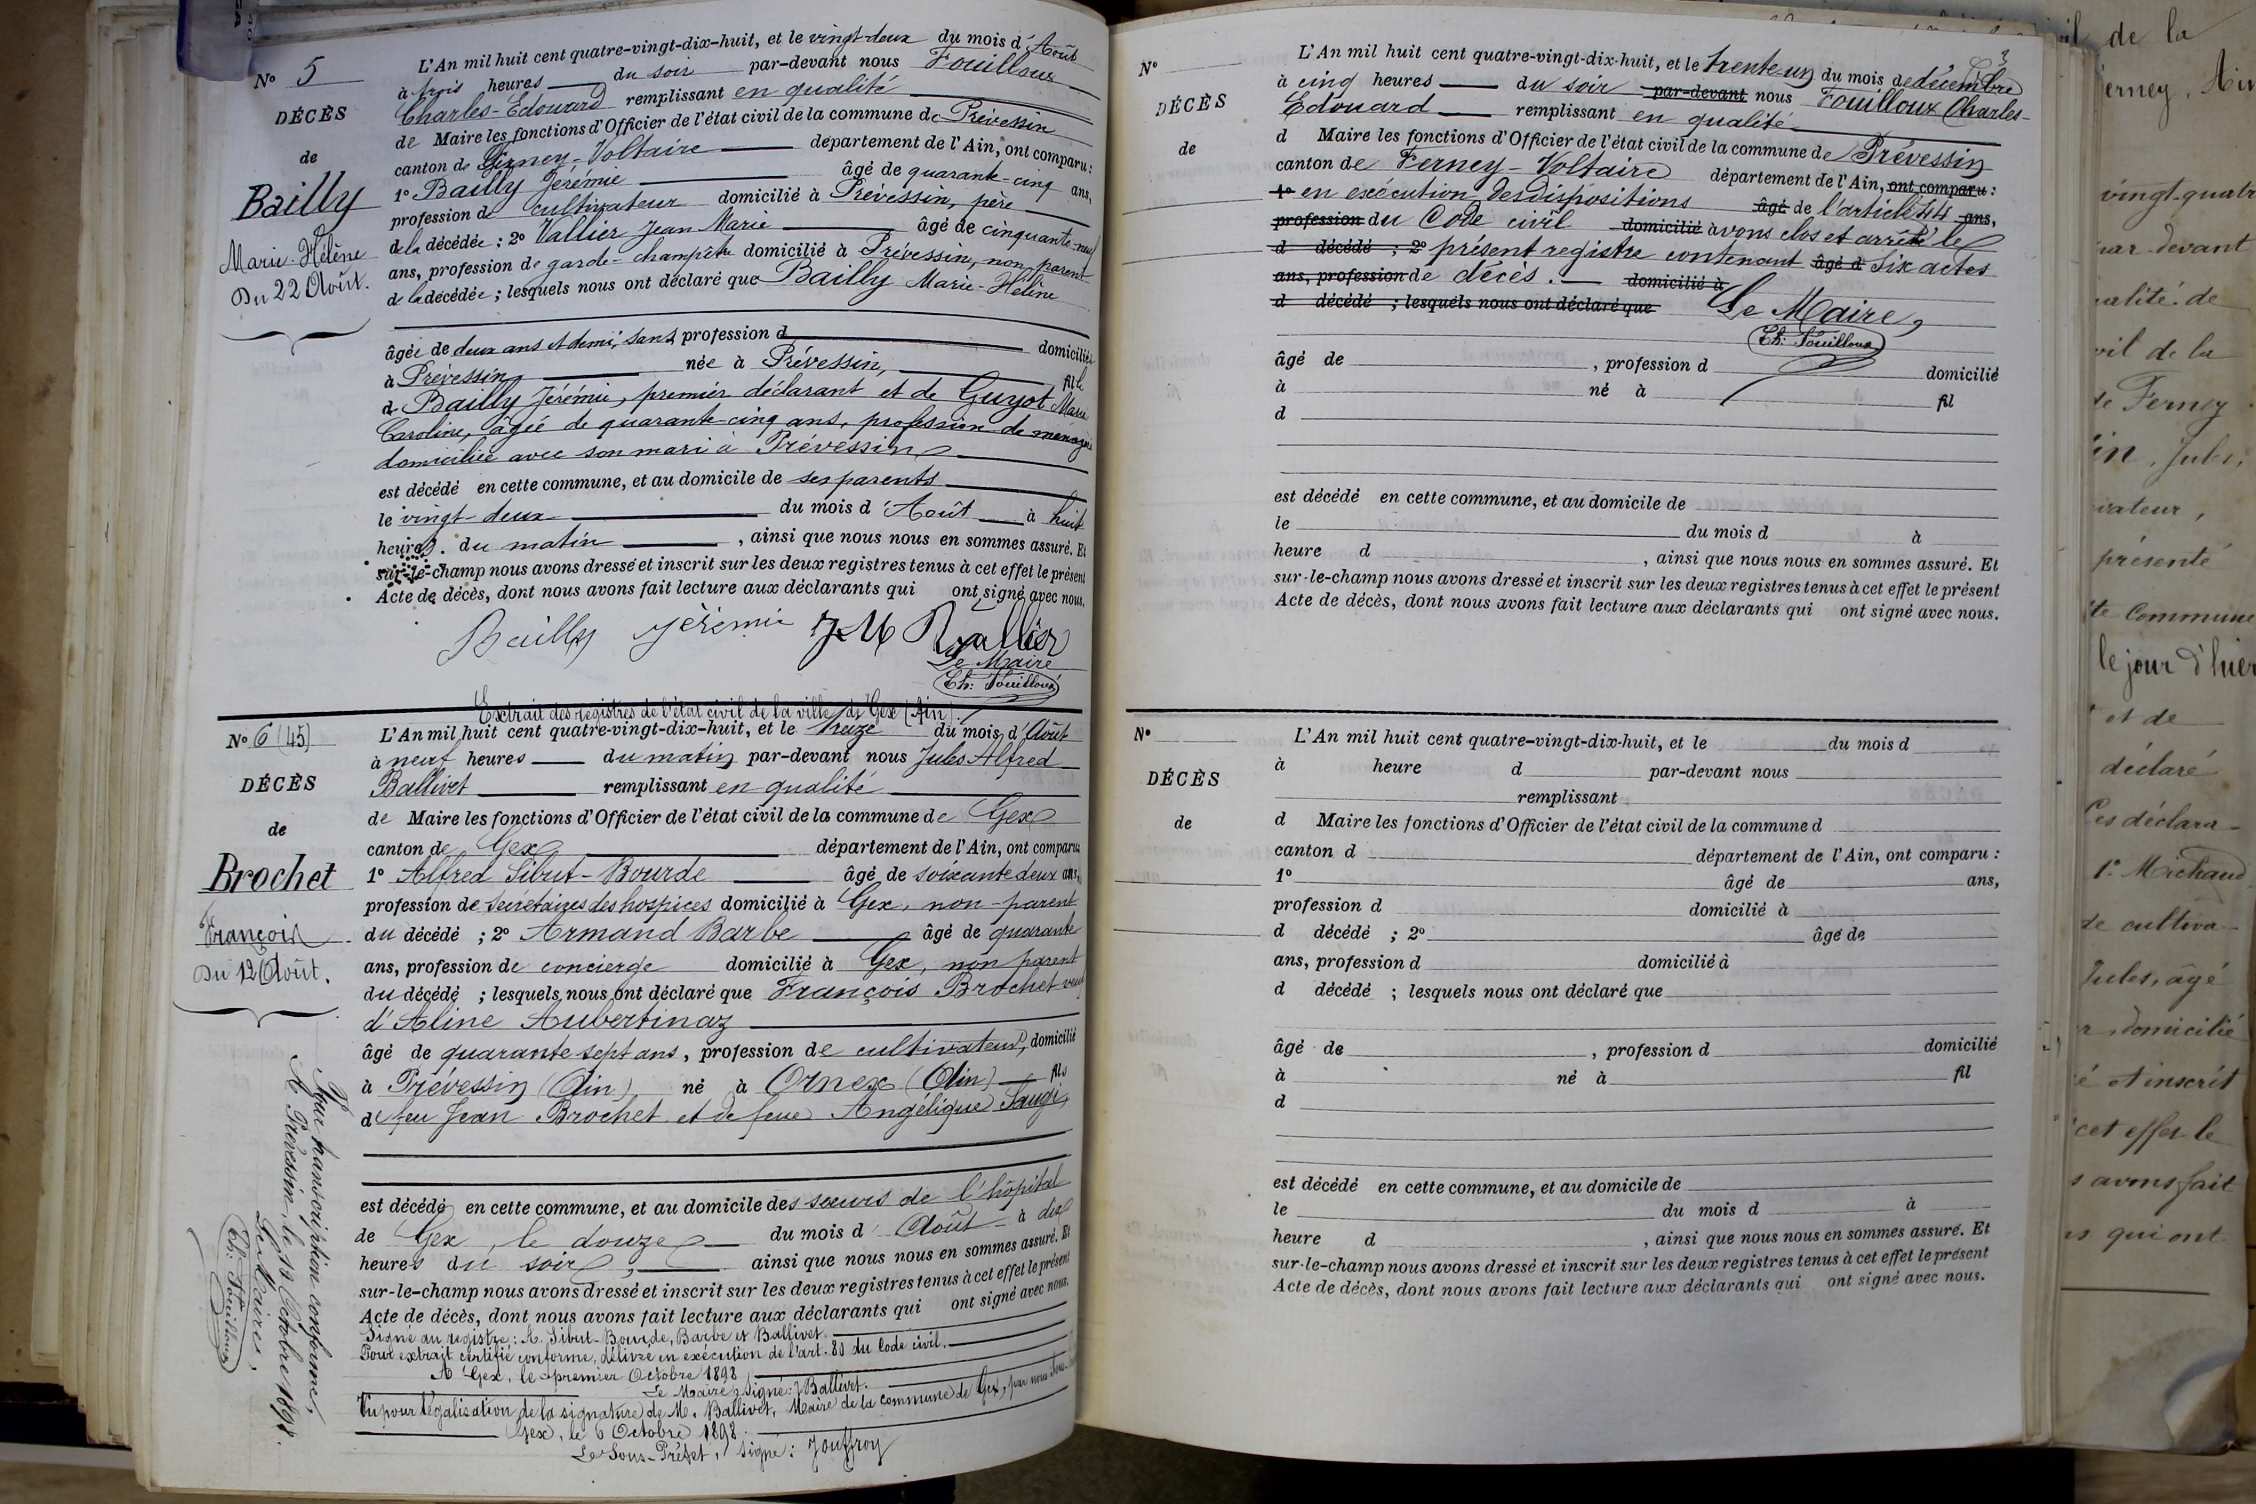 N° 5
DÉCÈS
de
Bailly
Marie-Hélène
Du 22 Août.
L'An mil huit cent quatre-vingt-dix-huit, et le vingt-deux du mois d'Août
à trois heures du soir par-devant nous Fouilloux
Charles-Édouard remplissant en qualité
de Maire les fonctions d'Officier de l'état civil de la commune de Prévessin
canton de Ferney-Voltaire département de l'Ain, ont comparu :
1° Bailly Jérémie âgé de quarante-cinq ans,
profession de cultivateur domicilié à Prévessin, père
de la décédée ; 2° Vallier Jean Marie âgé de cinquante-neuf
ans, profession de garde-champêtre domicilié à Prévessin, non parent
de la décédée ; lesquels nous ont déclaré que Bailly Marie-Hélène
âgée de deux ans et demi, sans profession d domiciliée
à Prévessin née à Prévessin, fille
d Bailly Jérémie, premier déclarant et de Guyot Marie
Caroline, âgée de quarante-cinq ans, profession de ménagère
domiciliée avec son mari à Prévessin
est décédé en cette commune, et au domicile de ses parents
le vingt-deux du mois d'Août à huit
heures du matin, ainsi que nous nous en sommes assuré. Et
sur-le-champ nous avons dressé et inscrit sur les deux registres tenus à cet effet le présent
Acte de décès, dont nous avons fait lecture aux déclarants qui ont signé avec nous.
Bailly Jérémie J M Vallier
Le Maire
Ch: Fouilloux
Extrait des registres de l'état civil de la ville de Gex (Ain).
N° 6 (45)
DÉCÈS
de
Brochet
François
Du 12 Août.
L'An mil huit cent quatre-vingt-dix-huit, et le treize du mois d'Août
à neuf heures du matin par-devant nous Jules Alfred
Ballivet remplissant en qualité
de Maire les fonctions d'Officier de l'état civil de la commune de Gex
canton de Gex département de l'Ain, ont comparu
1° Alfred Sibut-Bourde âgé de soixante deux ans,
profession de secrétaires des hospices domicilié à Gex, non-parent
du décédé ; 2° Armand Barbe âgé de quarante
ans, profession de concierge domicilié à Gex, non parent
du décédé ; lesquels nous ont déclaré que François Brochet veuf
d'Aline Aubertinaz
âgé de quarante sept ans, profession de cultivateur, domicilié
à Prévessin (Ain) né à Ornex (Ain) fils
de feu Jean Brochet et de feue Angélique Saugi,
est décédé en cette commune, et au domicile des sœurs de l'hôpital
de Gex, le douze du mois d'Août à dix
heures du soir, ainsi que nous nous en sommes assuré. Et
sur-le-champ nous avons dressé et inscrit sur les deux registres tenus à cet effet le présent
Acte de décès, dont nous avons fait lecture aux déclarants qui ont signé avec nous.
Signé au registre : A. Sibut-Bourde, Barbe et Ballivet.
Pour extrait certifié conforme, délivré en exécution de l'art. 80 du Code civil.
A Gex, le premier Octobre 1898
Le Maire, signé : J Ballivet.
Vu pour légalisation de la signature de M. Ballivet, Maire de la commune de Gex, par nous
Gex, le 6 Octobre 1898.
Le Sous-Préfet, signé : Jouffroy
Pour transcription conforme,
A Prévessin le 12 Octobre 1898.
Le Maire,
Ch: Fouilloux
3
N°
DÉCÈS
de
L'An mil huit cent quatre-vingt-dix-huit, et le trente-un du mois de décembre
à cinq heures du soir par-devant nous Fouilloux Charles-
Edouard remplissant en qualité
d Maire les fonctions d'Officier de l'état civil de la commune de Prévessin
canton de Ferney-Voltaire département de l'Ain, ont comparu :
1° en exécution des dispositions âgé de l'article 44 ans,
profession du Code civil domicilié avons clos et arrêté le
d décédé ; 2° présent registre contenant âgé d six actes
ans, profession de décès. domicilié à
d décédé ; lesquels nous ont déclaré que Le Maire,
Ch: Fouilloux
âgé de , profession d domicilié
à né à fil
d
est décédé en cette commune, et au domicile de
le du mois d à
heure d , ainsi que nous nous en sommes assuré. Et
sur-le-champ nous avons dressé et inscrit sur les deux registres tenus à cet effet le présent
Acte de décès, dont nous avons fait lecture aux déclarants qui ont signé avec nous.
N°
DÉCÈS
de
L'An mil huit cent quatre-vingt-dix-huit, et le du mois d
à heure d par-devant nous
remplissant
d Maire les fonctions d'Officier de l'état civil de la commune d
canton d département de l'Ain, ont comparu :
1° âgé de ans,
profession d domicilié à
d décédé ; 2° âgé de
ans, profession d domicilié à
d décédé ; lesquels nous ont déclaré que
âgé de , profession d domicilié
à né à fil
d
est décédé en cette commune, et au domicile de
le du mois d à
heure d , ainsi que nous nous en sommes assuré. Et
sur-le-champ nous avons dressé et inscrit sur les deux registres tenus à cet effet le présent
Acte de décès, dont nous avons fait lecture aux déclarants qui ont signé avec nous.
de la
vingt-quatr
par devant
de
vil de la
de Ferney
présenté
commune
le jour d'hier
et de
déclaré
Ces déclara-
1° Michaud
de cultiva-
Jules, âgé
domicilié
et inscrit
cet effet le
avons fait
qui ont